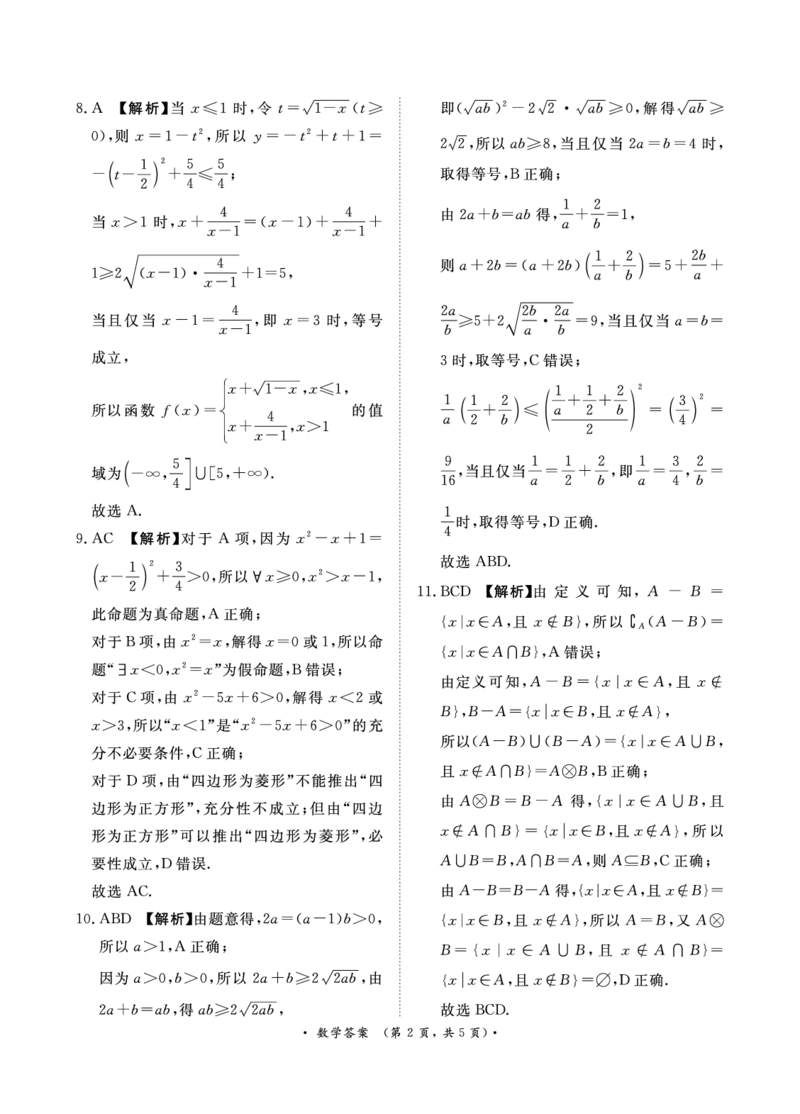 8. A 【解析】当 x≤1 时,令 t=√(1-x) (t≥
0),则 x=1-t²,所以 y=-t²+t+1=
-(t-1/2)²+5/4≤5/4;
当 x>1 时,x+4/(x-1)=(x-1)+4/(x-1)+
1≥2√((x-1)·4/(x-1))+1=5,
当且仅当 x-1=4/(x-1),即 x=3 时,等号
成立,
所以函数 f(x)={x+√(1-x),x≤1, x+4/(x-1),x>1 的值
域为(-∞,5/4]∪[5,+∞).
故选 A.
9. AC 【解析】对于 A 项,因为 x²-x+1=
(x-1/2)²+3/4>0,所以∀x≥0,x²>x-1,
此命题为真命题,A 正确;
对于 B 项,由 x²=x,解得 x=0 或 1,所以命
题“∃x<0,x²=x”为假命题,B 错误;
对于 C 项,由 x²-5x+6>0,解得 x<2 或
x>3,所以“x<1”是“x²-5x+6>0”的充
分不必要条件,C 正确;
对于 D 项,由“四边形为菱形”不能推出“四
边形为正方形”,充分性不成立;但由“四边
形为正方形”可以推出“四边形为菱形”,必
要性成立,D 错误.
故选 AC.
10. ABD 【解析】由题意得,2a=(a-1)b>0,
所以 a>1,A 正确;
因为 a>0,b>0,所以 2a+b≥2√(2ab),由
2a+b=ab,得 ab≥2√(2ab),
即(√(ab))²-2√2·√(ab)≥0,解得√(ab)≥
2√2,所以 ab≥8,当且仅当 2a=b=4 时,
取得等号,B 正确;
由 2a+b=ab 得,1/a+2/b=1,
则 a+2b=(a+2b)(1/a+2/b)=5+2b/a+
2a/b≥5+2√(2b/a·2a/b)=9,当且仅当 a=b=
3 时,取等号,C 错误;
1/a(1/2+2/b)≤((1/a+1/2+2/b)/2)²=(3/4)²=
9/16,当且仅当1/a=1/2+2/b,即1/a=3/4,2/b=
1/4时,取得等号,D 正确.
故选 ABD.
11. BCD 【解析】由定义可知,A-B=
{x|x∈A,且 x∉B},所以∁_A(A-B)=
{x|x∈A∩B},A 错误;
由定义可知,A-B={x|x∈A,且 x∉
B},B-A={x|x∈B,且 x∉A},
所以(A-B)∪(B-A)={x|x∈A∪B,
且 x∉A∩B}=A⊗B,B 正确;
由 A⊗B=B-A 得,{x|x∈A∪B,且
x∉A∩B}={x|x∈B,且 x∉A},所以
A∪B=B,A∩B=A,则 A⊆B,C 正确;
由 A-B=B-A 得,{x|x∈A,且 x∉B}=
{x|x∈B,且 x∉A},所以 A=B,又 A⊗
B={x|x∈A∪B,且 x∉A∩B}=
{x|x∈A,且 x∉B}=∅,D 正确.
故选 BCD.
· 数学答案 (第 2 页,共 5 页)·